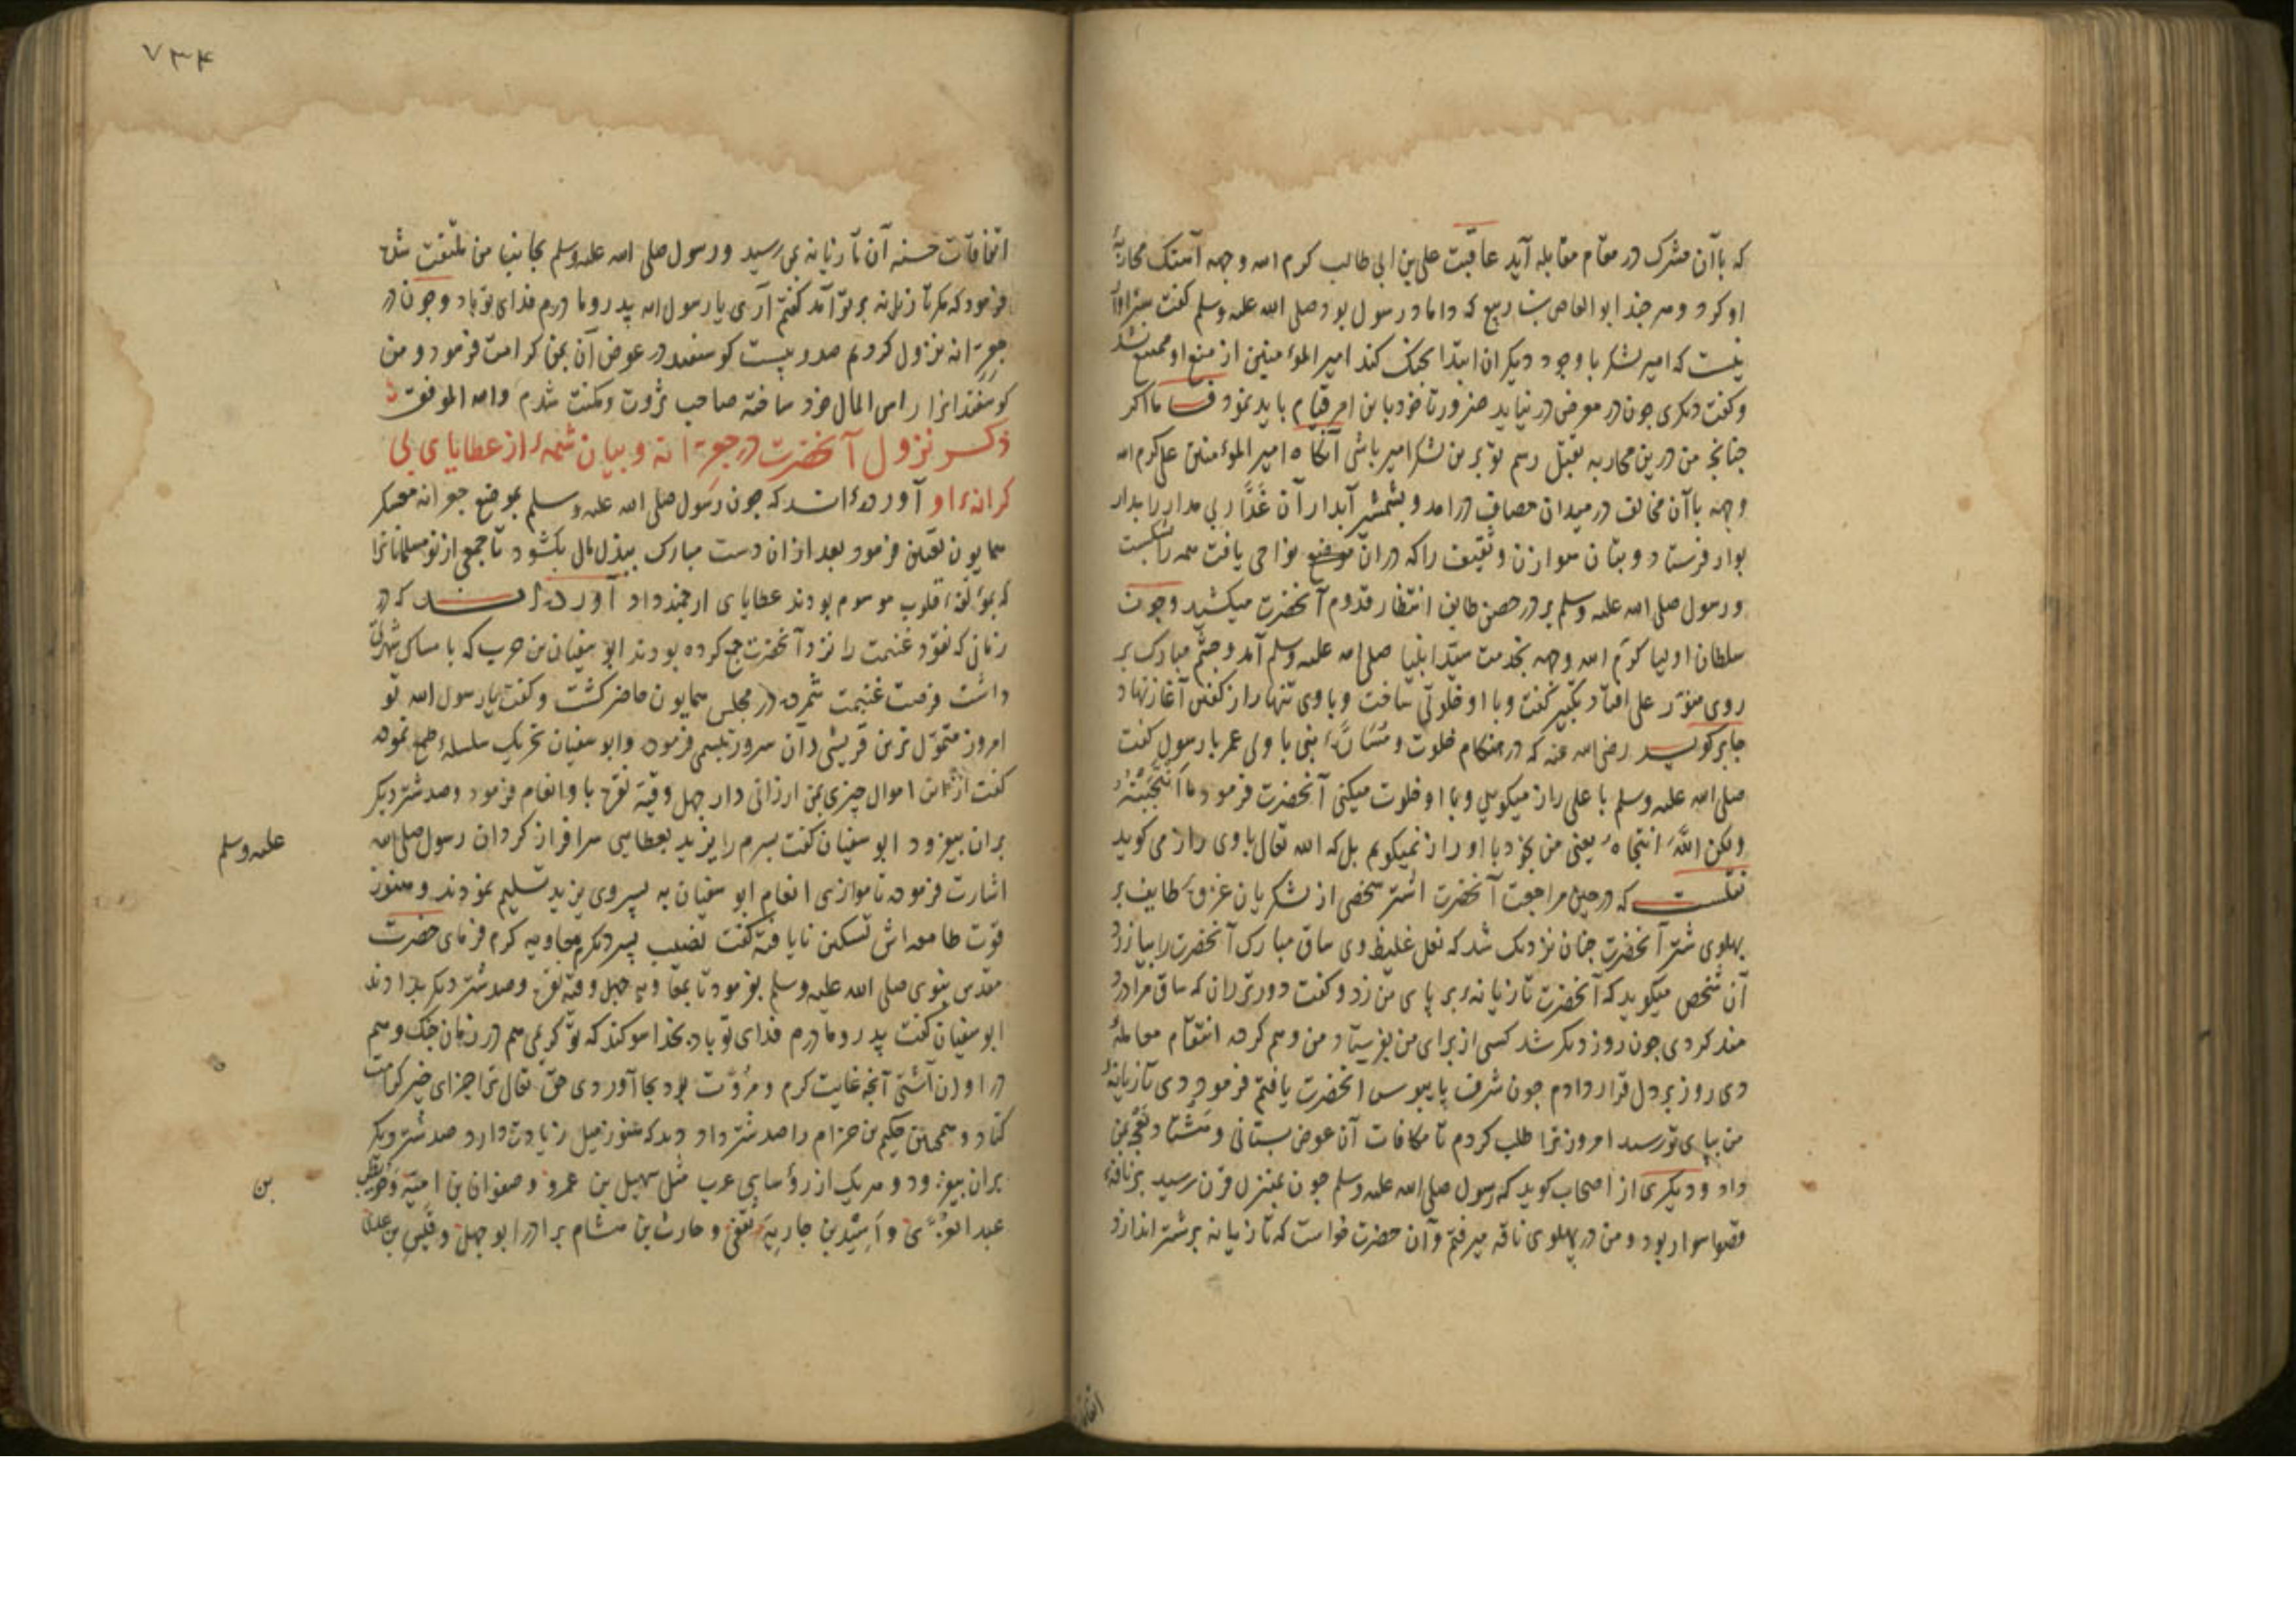 که باآن مشرک در مقام مقابله آید عاقبت علی بن ابی طالب کرم الله وجهه آهنک محاربهٔ
او کرد و هر چند ابوالعاص بن ربیع که داماد رسول بود صلی الله علیه وسلم کفت سزاوار
نیست که امیر لشکر با وجود دیکران ابتدا بجنک کند امیر المؤمنین از منع او ممتنع نشد
وکفت دیکری چون در معرض در نیاید ضرورتا خود باین امر قیام باید نمود فاما اکر
چنانچه من درین محاربه بقتل رسم تو برین لشکر امیر باشی آنکاه امیر المؤمنین علی کرم الله
وجهه باآن مخالف در میدان مصاف درامد و بشمشیر آبدار آن غدّار بی مدار را بدار
بوار فرستاد و بتان هوازن وثقیف را که دران نواحی یافت همه را شکست
ورسول صلی الله علیه وسلم بر در حصن طایف انتظار قدوم آنحضرت میکشید وچون
سلطان اولیا کرّم الله وجهه بخدمت سیّد انبیا صلی الله علیه وسلم آمد وچشم مبارک بر
روی منوّر علی افتاد تکبیر کفت وبا او خلوتی ساخت وباوی تنها راز کفتن آغاز نهاد
جابر کوید رضی الله عنه که در هنکام خلوت و نبی با ولی عمر با رسول کفت
صلی الله علیه وسلم با علی راز میکویی وبا او خلوت میکنی آنحضرت فرمود ما اَنتَجَیتُهُ
ولکن اللّهَ انتجاه یعنی من بخود با او راز نمیکویم بل که الله تعالی باوی راز می کوید
نقلست که در حین مراجعت آنحضرت اشتر شخصی از لشکریان غزوهٔ طایف بر
پهلوی شتر آنحضرت چنان نزدیک شد که نعل غلیظ وی ساق مبارک آنحضرت را بیازرد
آن شخص میکوید که آنحضرت تازیانهٔ بر پای من زد وکفت دورتر ران که ساق مرا درد
مند کردی چون روز دیکر شد کسی از برای من بفرستاد من وهم کرده انتقام معاملهٔ
دی روز بر دل قرار دادم چون شرف پایبوس انحضرت یافتم فرمود دی تازیانهٔ
من بپای تو رسید امروز ترا طلب کردم تا مکافات آن عوض بستانی و هشتاد نعجه بمن
داد ودیکری از اصحاب کوید که رسول صلی الله علیه وسلم چون بمنزل قرن رسید بر ناقهٔ
قصوا سوار بود ومن در پهلوی ناقه میرفتم وآن حضرت خواست که تازیانه بر شتر اندازد
۷۳۴
اتفاقات حسنه آن تازیانه بمن رسید ورسول صلی الله علیه وسلم بجانب من ملتفت شده
فرمود که مکر تازیانه بر تو آمد کفتم آری یا رسول الله پدر ومادرم فدای تو باد وچون در
جعرانه نزول کردیم صد وبیست کوسفند در عوض آن بمن کرامت فرمود ومن
کوسفندانرا راس المال خود ساخته صاحب ثروت ومکنت شدم والله الموفق
ذکر نزول آنحضرت در جعرانه وبیان شمهٔ از عطایای بی
کرانهٔ او آورده‌اند که چون رسول صلی الله علیه وسلم بموضع جعرانه معسکر
همایون تعیین فرمود بعد ازان دست مبارک ببذل مال بکشود تا جمعی از نو مسلمانانرا
که بمؤلفهٔ قلوب موسوم بودند عطایای ارجمند داد آورده‌اند که در
زمانی که نقود غنیمت را نزد آنحضرت جمع کرده بودند ابو سفیان بن حرب که با مساک شهرتی
داشت فرصت غنیمت شمرده در مجلس همایون حاضر کشت وکفت یا رسول الله تو
امروز متموّل ترین قریشی وآن سرور تبسمی فرموده وابو سفیان تحریک سلسلهٔ طمع نموده
کفت ازین اموال چیزی بمن ارزانی دار چهل وقیه نقره باو انعام فرمود وصد شتر دیکر
بران بیفزود ابو سفیان کفت پسرم را یزید بعطایی سرافراز کردان رسول صلی الله
علیه وسلم
اشارت فرموده تا موازی انعام ابو سفیان به پسر وی یزید تسلیم نمودند وهنوز
قوت طامعه‌اش تسکین نایافته کفت نصیب پسر دیکرم معاویه کرم فرمای حضرت
مقدس نبوی صلی الله علیه وسلم بفرمود تا بمعاویه چهل وقیه نقره وصد شتر دیکر بدادند
ابو سفیان کفت پدر ومادرم فدای تو باد بخدا سوکند که تو کریمی هم در زمان جنک وهم
در اوان آشتی آنچه غایت کرم ومروّت بود بجا آوردی حق تعالی ترا جزای خیر کرامت
کناد وهمچنین حکیم بن حزام را صد شتر داد ودید که هنوز میل زیادت دارد صد شتر دیکر
بران بیفزود وهر یک از رؤسای عرب مثل سهیل بن عمرو وصفوان بن امیّه وحویطب
بن
عبد العزّی واُسَید بن جاریهٔ ثقفی وحارث بن هشام برادر ابو جهل وقیس بن عدی